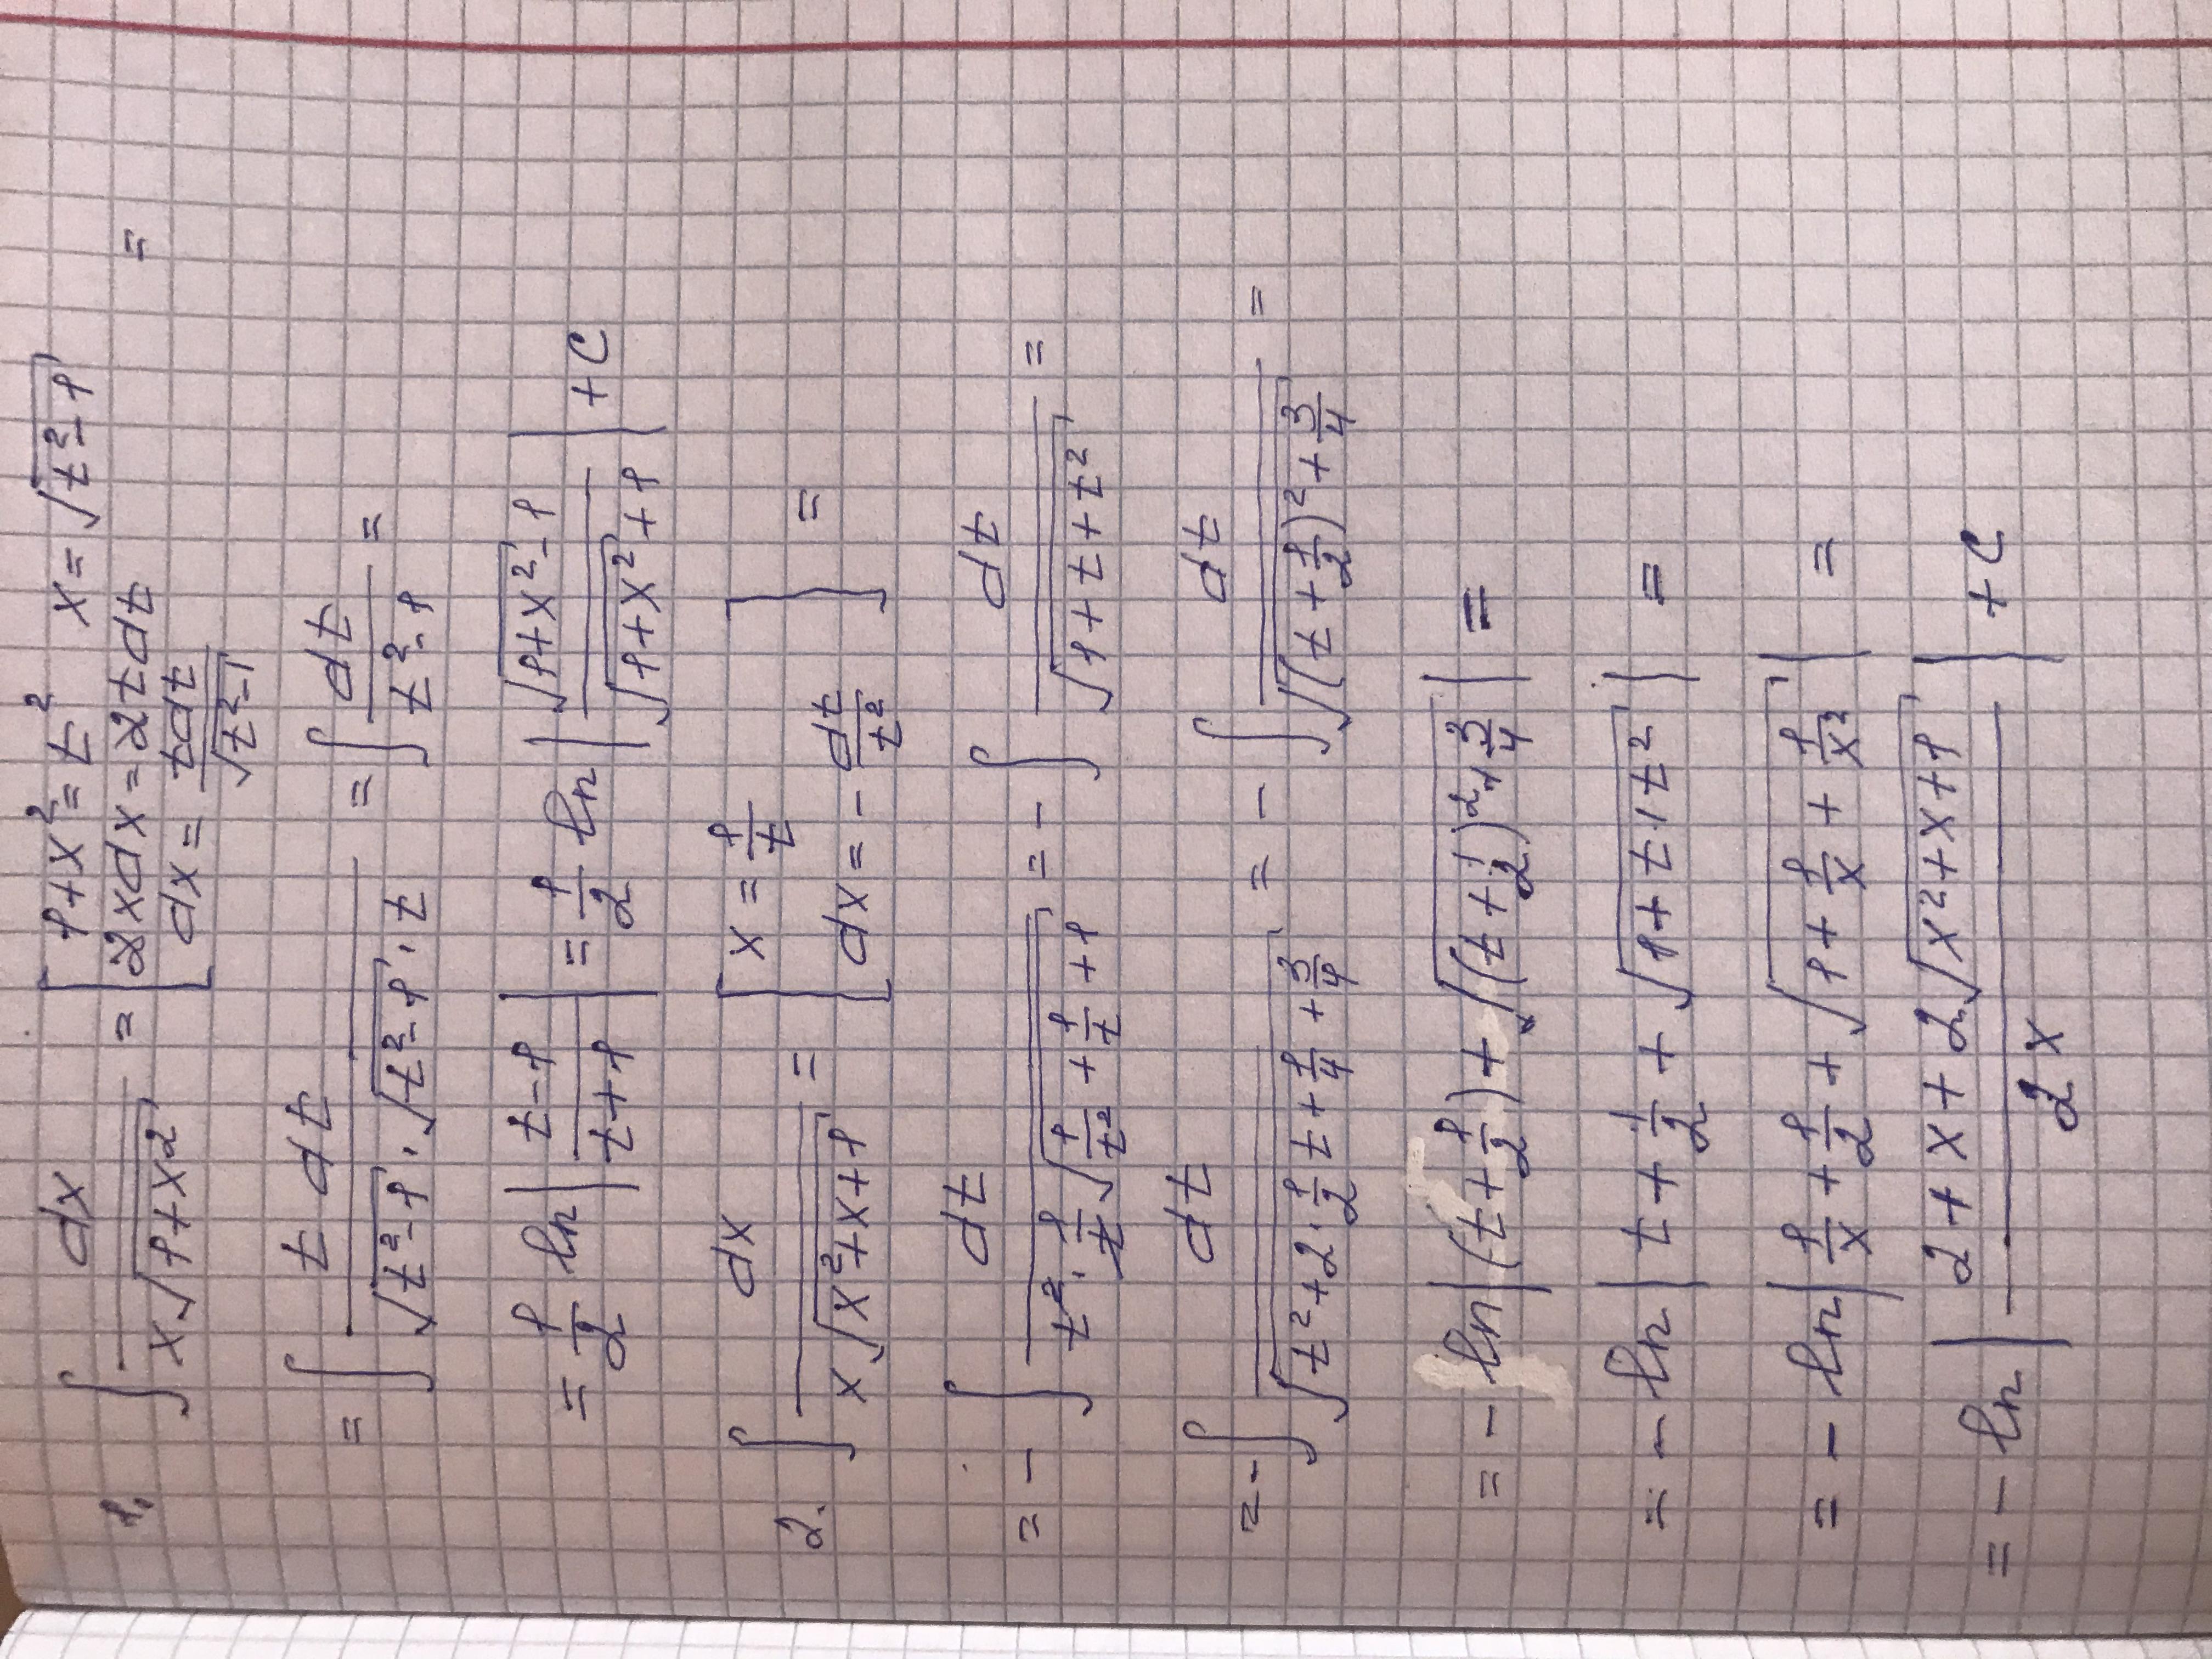 1. ∫ dx / (x√(1+x²)) = [ 1+x² = t²   x = √(t²-1)
2xdx = 2tdt
dx = tdt / √(t²-1) =
= ∫ t dt / (√(t²-1) · √(t²-1) · t) = ∫ dt / (t²-1) =
= 1/2 ln | (t-1) / (t+1) | = 1/2 ln | (√(1+x²) - 1) / (√(1+x²) + 1) | + C
2. ∫ dx / (x√(x²+x+1)) = [ x = 1/t
dx = - dt/t² ] =
= - ∫ dt / (t² · 1/t √(1/t² + 1/t + 1)) = - ∫ dt / √(1+t+t²) =
= - ∫ dt / √(t² + 2·1/2 t + 1/4 + 3/4) = - ∫ dt / √((t + 1/2)² + 3/4) =
= - ln | (t + 1/2) + √((t + 1/2)² + 3/4) | =
= - ln | t + 1/2 + √(1+t+t²) | =
= - ln | 1/x + 1/2 + √(1 + 1/x + 1/x²) | =
= - ln | (2 + x + 2√(x²+x+1)) / 2x | + C